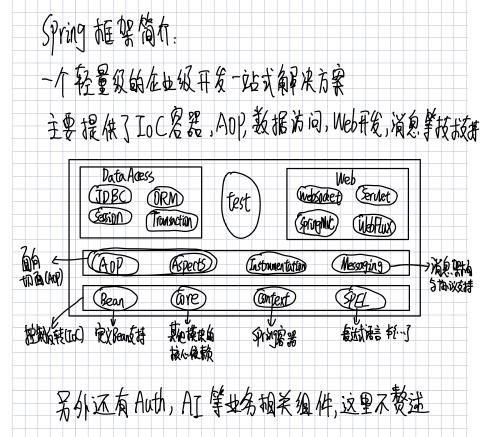 Spring 框架简介:
一个轻量级的企业级开发一站式解决方案
主要提供了IoC容器,AOP,数据访问,Web开发,消息等技术支持
Data Access
JDBC
ORM
Session
Transaction
test
Web
Websocket
Servlet
SpringMVC
WebFlux
面向
切面(AOP)
AOP
Aspects
Instrumentation
Messaging
消息架构
与协议支持
Bean
Core
Context
SPEL
控制反转(IoC)
定义Bean支持
其他模块的
核心依赖
Spring容器
表达式语言 #{...}
另外还有Auth,AI等业务相关组件,这里不赘述